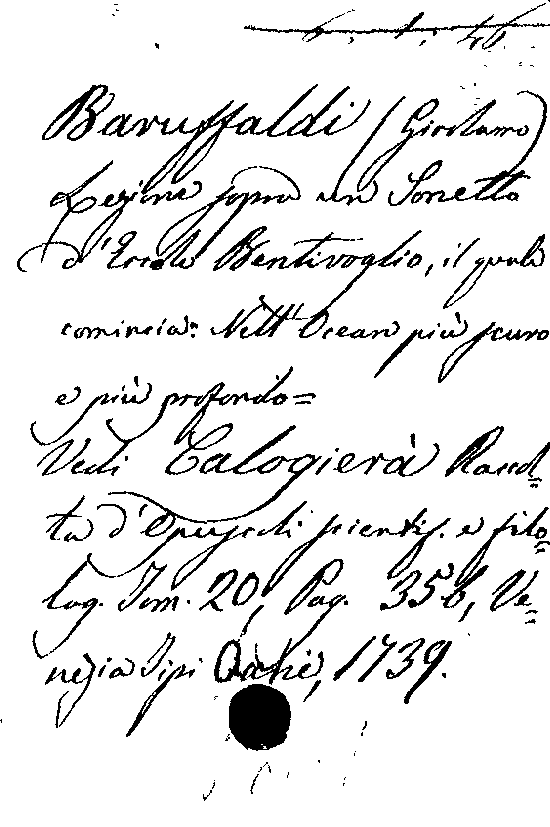 Baruffaldi (Girolamo)
Lezione sopra un Sonetto
d'Ercole Bentivoglio, il quale
comincia: Nell'Ocean più scuro
e più profondo=
Vedi Calogierà Raccol=
ta d'Opuscoli scientif. e filo=
log. Tom. 20, Pag. 356, Ve=
nezia Tipi 1739.